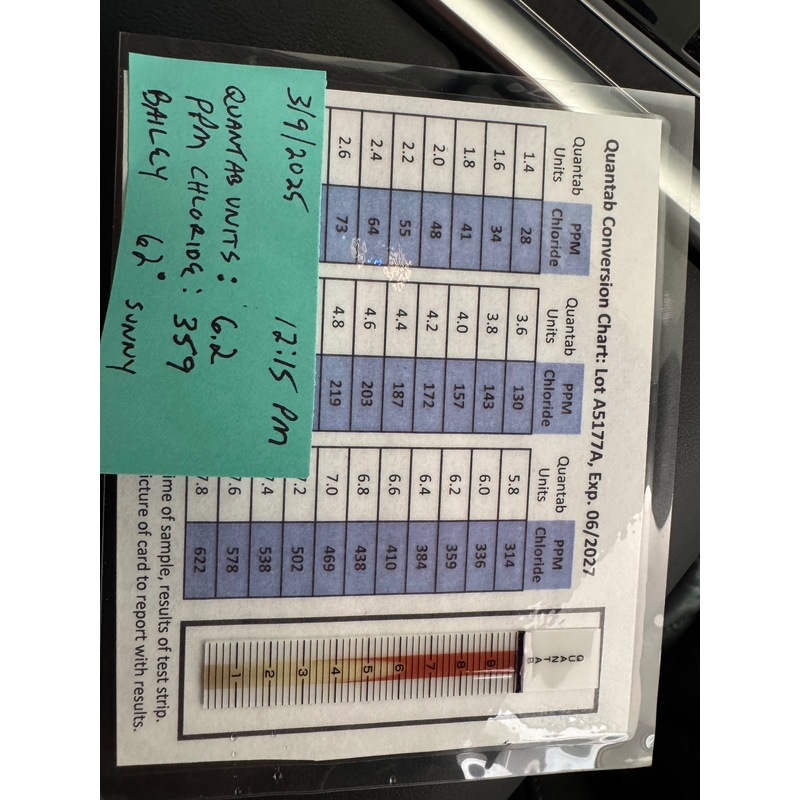 Quantab Conversion Chart: Lot A5177A, Exp. 06/2027
Quantab Units PPM Chloride Quantab Units PPM Chloride Quantab Units PPM Chloride
1.4 28 3.6 130 5.8 314
1.6 34 3.8 143 6.0 336
1.8 41 4.0 157 6.2 359
2.0 48 4.2 172 6.4 384
2.2 55 4.4 187 6.6 410
2.4 64 4.6 203 6.8 438
2.6 73 4.8 219 7.0 469
.2 502
.4 538
.6 578
.8 622
ime of sample, results of test strip.
icture of card to report with results.
QUANTAB
9
8
7
6
5
4
3
2
1
3/9/2025 12:15 PM
QUANTAB UNITS: 6.2
PPM CHLORIDE: 359
BAILEY 62° SUNNY